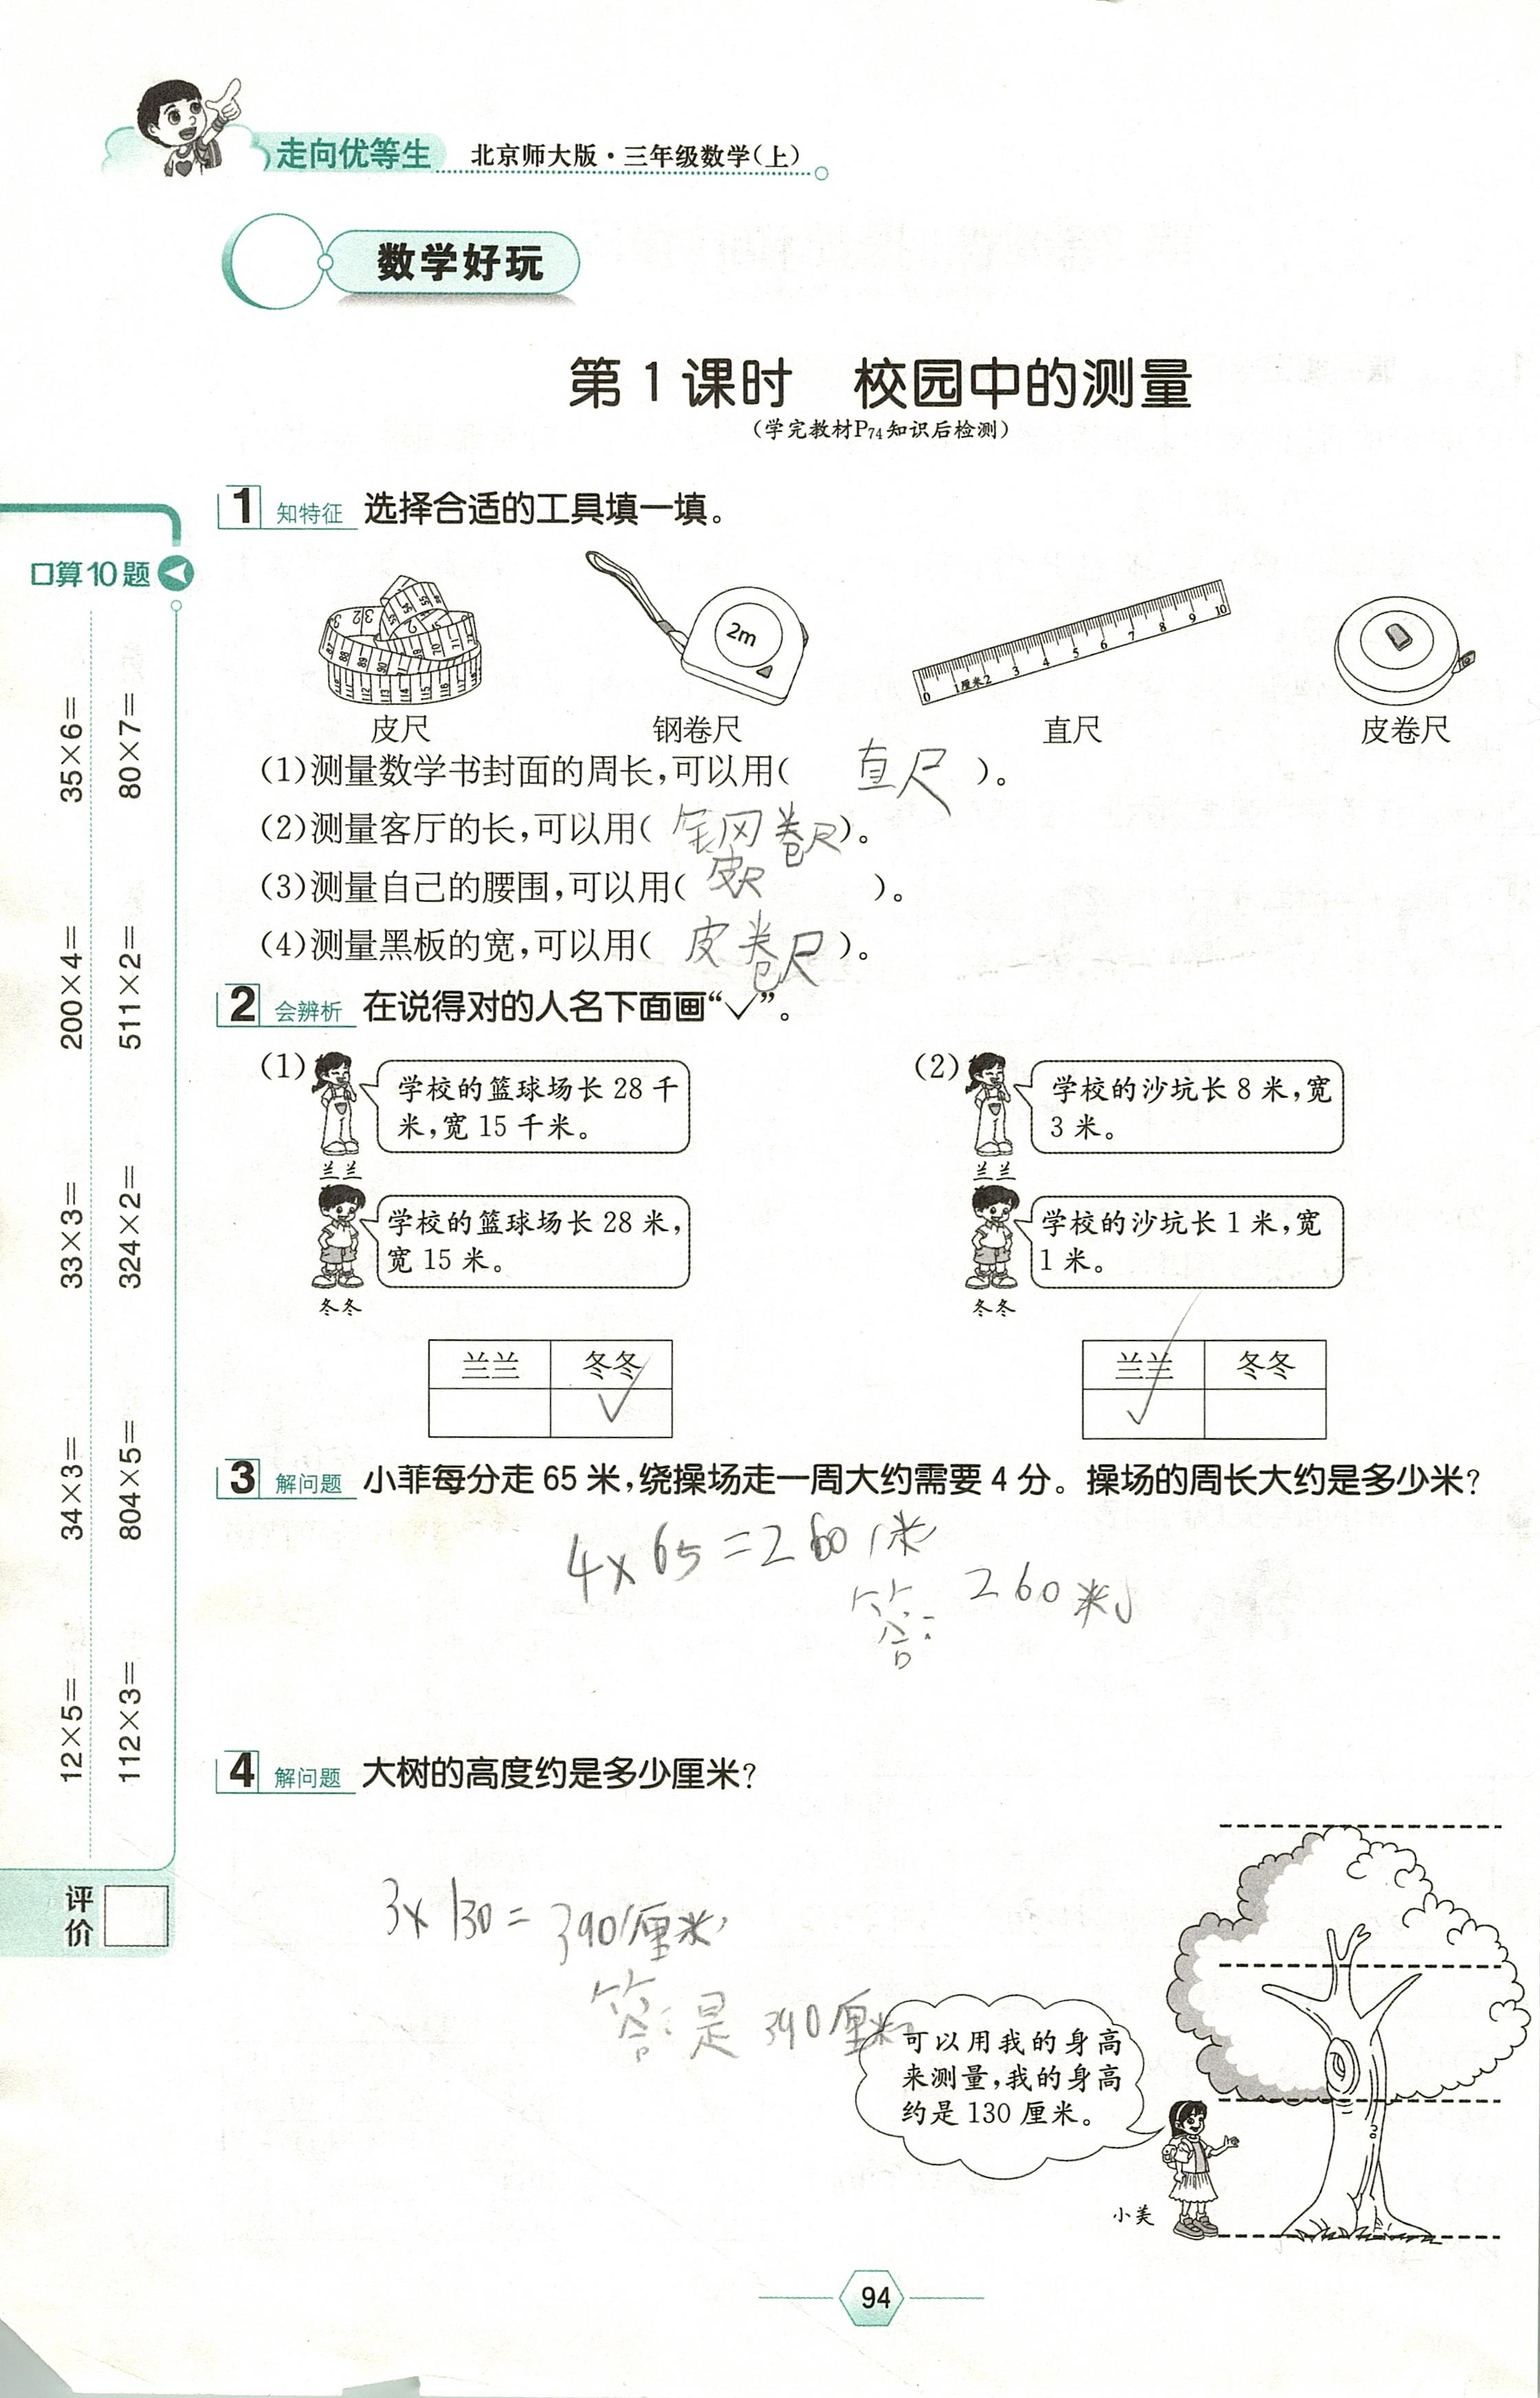 走向优等生 北京师大版·三年级数学(上)
数学好玩
第1课时 校园中的测量
(学完教材P74知识后检测)
1 知特征 选择合适的工具填一填。
2m
0 1厘米2 3 4 5 6 7 8 9 10
皮尺 钢卷尺 直尺 皮卷尺
(1)测量数学书封面的周长,可以用( 直尺 )。
(2)测量客厅的长,可以用( 钢卷尺 )。
(3)测量自己的腰围,可以用( 皮尺 )。
(4)测量黑板的宽,可以用( 皮卷尺 )。
2 会辨析 在说得对的人名下面画“✓”。
(1)
学校的篮球场长 28 千
米,宽 15 千米。
兰兰
学校的篮球场长 28 米,
宽 15 米。
冬冬
兰兰 冬冬
✓
(2)
学校的沙坑长 8 米,宽
3 米。
兰兰
学校的沙坑长 1 米,宽
1 米。
冬冬
兰兰 冬冬
✓
3 解问题 小菲每分走 65 米,绕操场走一周大约需要 4 分。操场的周长大约是多少米?
4×65=260(米)
答: 260米
4 解问题 大树的高度约是多少厘米?
3×130=390(厘米)
答:是 390厘米
可以用我的身高
来测量,我的身高
约是 130 厘米。
小美
口算10题
35×6=
200×4=
33×3=
34×3=
12×5=
80×7=
511×2=
324×2=
804×5=
112×3=
评
价
94